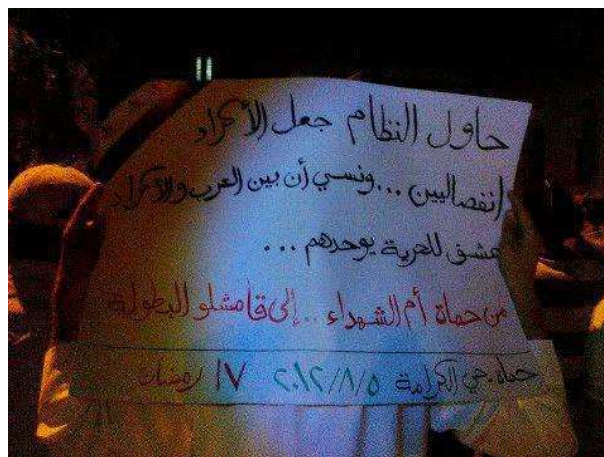 حاول النظام جعل الأكراد
انفصاليين ...ونسي أن بين العرب والأكراد
عشق للحرية يوحدهم ...
من حماة أم الشهداء .. إلى قامشلو البطولة
حماه-حي الكرامة ٢٠١٢/٨/٥ ١٧ رمضان